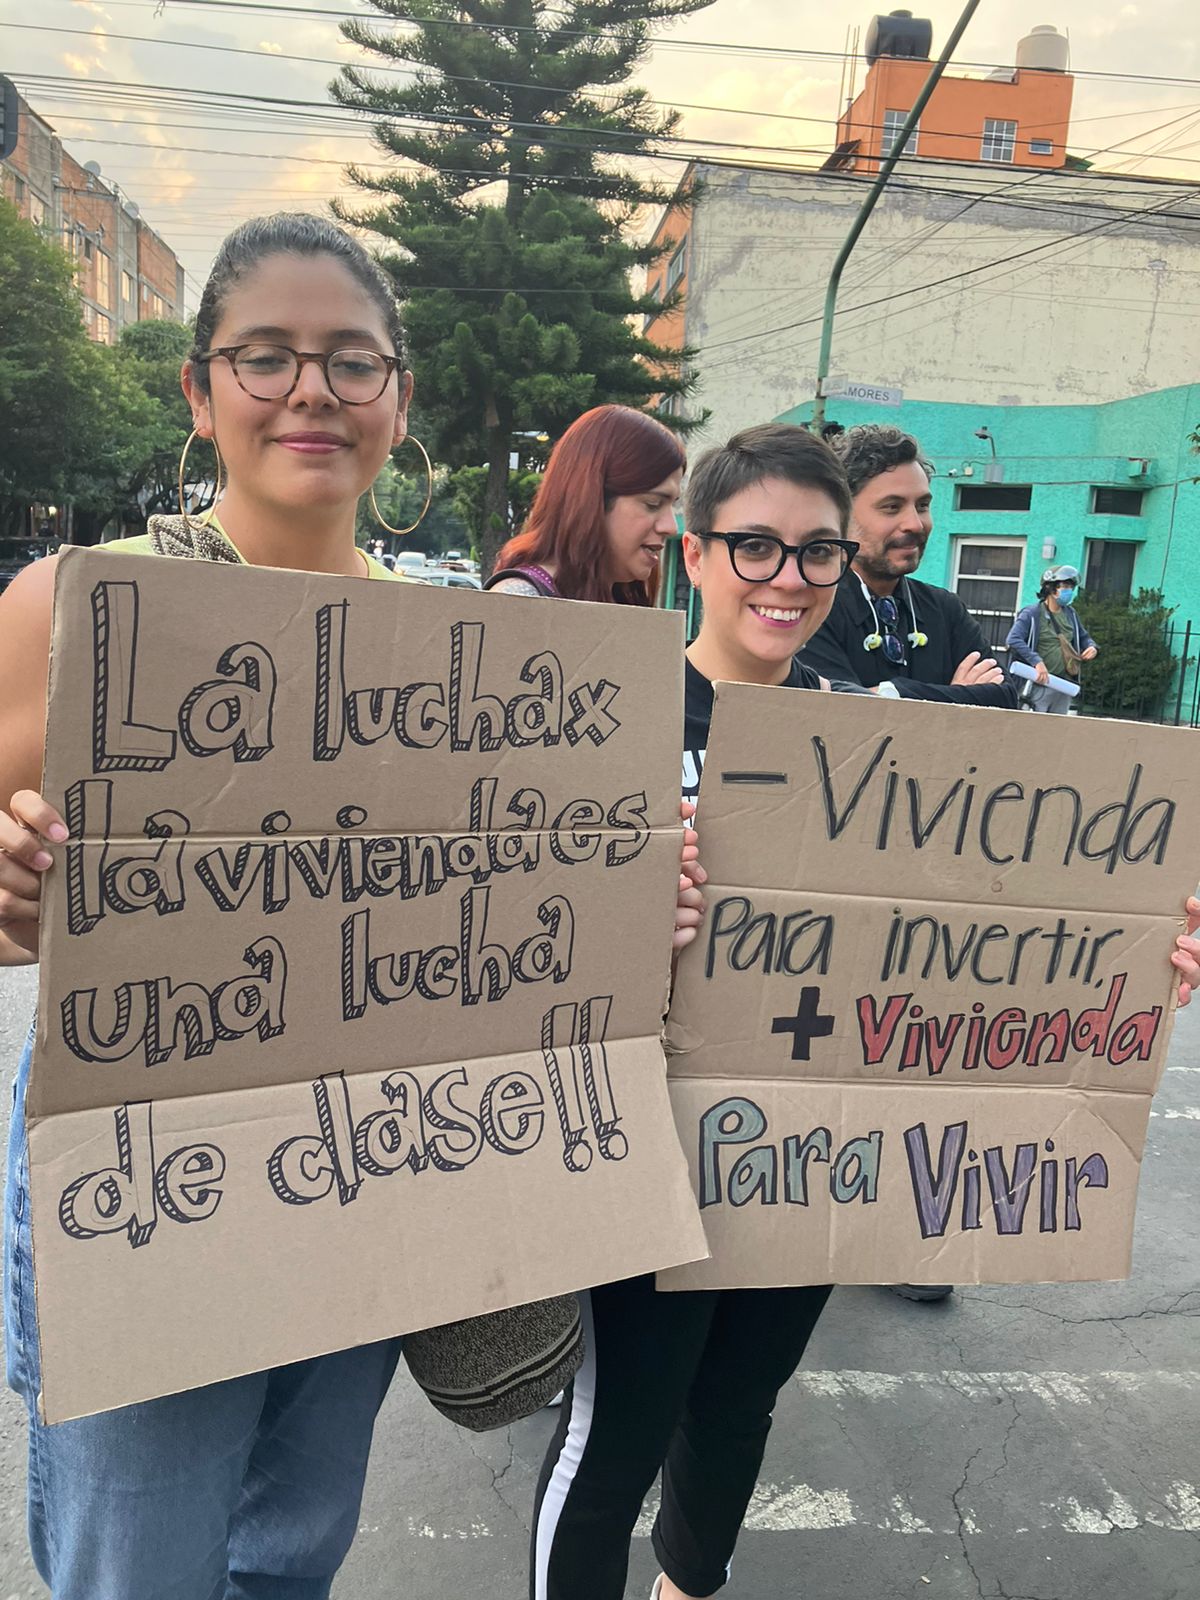 La lucha x
la vivienda es
una lucha
de clase!!
- Vivienda
Para invertir,
+ Vivienda
Para Vivir
AMORES